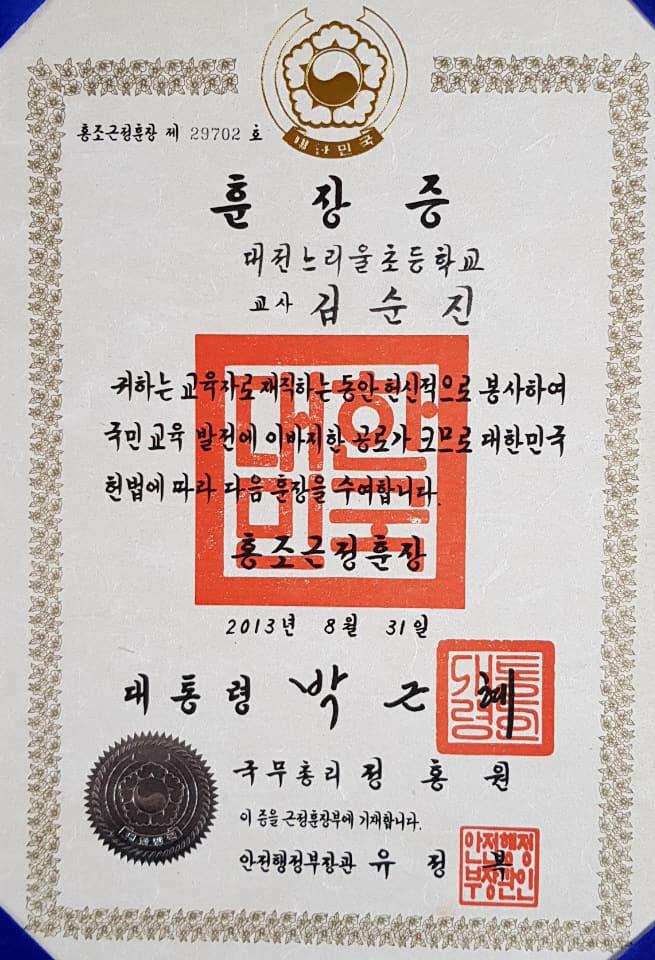 대한민국
홍조근정훈장 제 29702 호
훈장증
대전느리울초등학교
교사 김순진
귀하는 교육자로 재직하는 동안 헌신적으로 봉사하여
국민 교육 발전에 이바지한 공로가 크므로 대한민국
헌법에 따라 다음 훈장을 수여합니다.
대한
민국
홍조근정훈장
2013년 8월 31일
대통령 박근혜
국무총리 정홍원
이 증을 근정훈장부에 기재합니다.
안전행정부장관 유정복
안전행정
부장관인